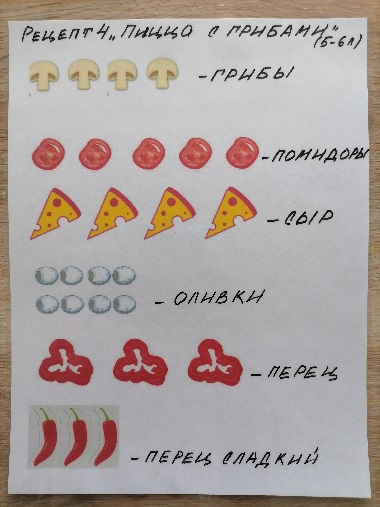 Рецепт 4 „Пицца с грибами"
(5-6л)
- ГРИБЫ
- ПОМИДОРЫ
- СЫР
- ОЛИВКИ
- ПЕРЕЦ
- ПЕРЕЦ СЛАДКИЙ